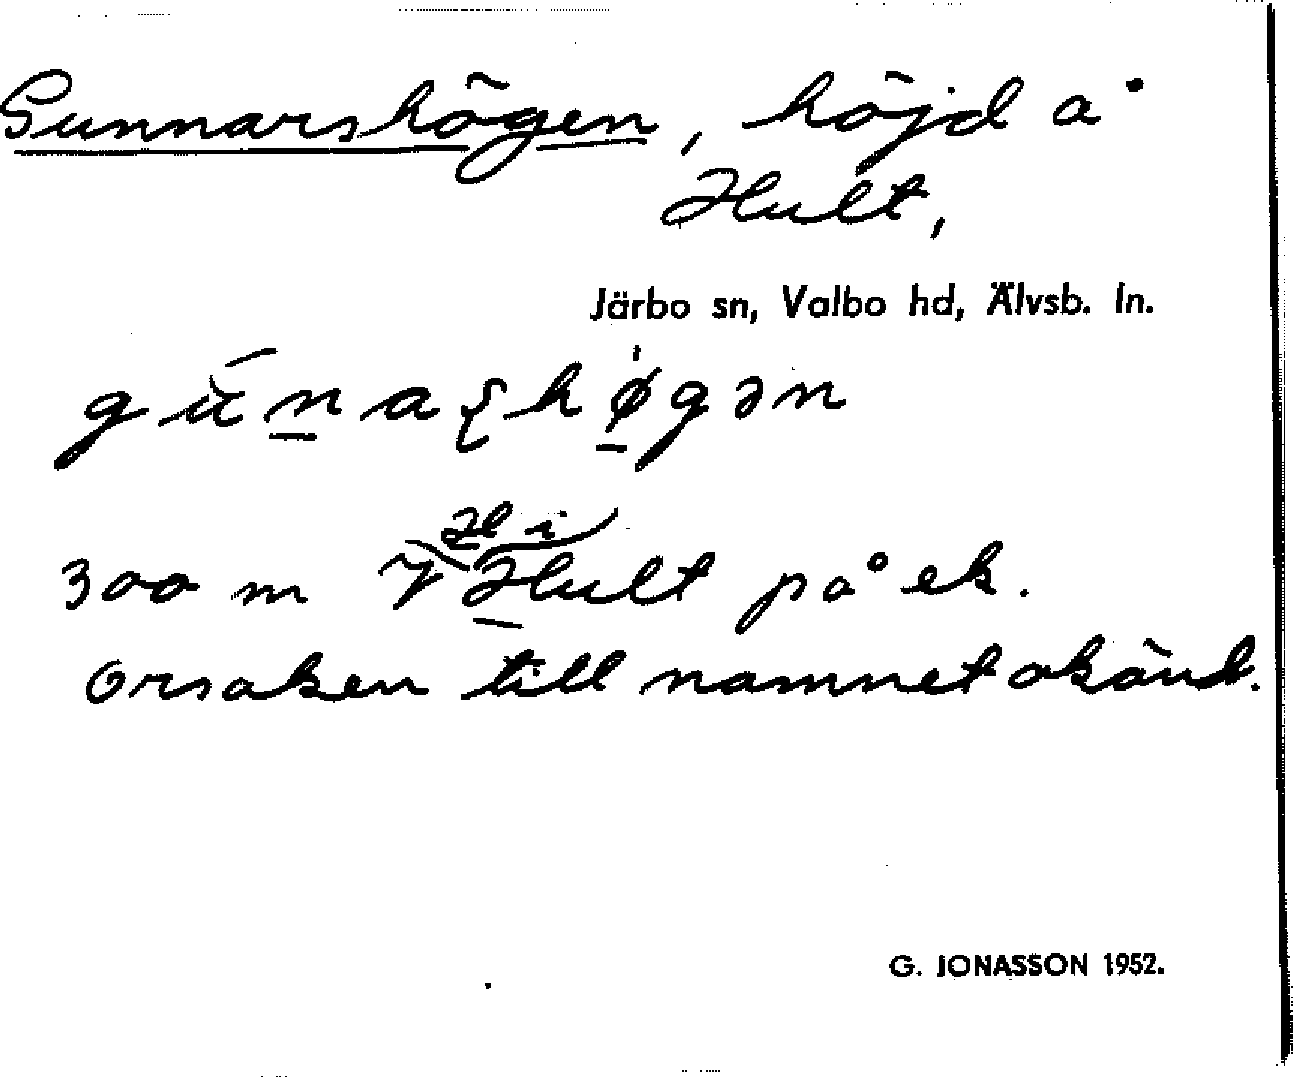 Gunnarshögen, höjd å
Hult,
Järbo sn, Valbo hd, Älvsb. ln.
300 m V Hl i Hult på ek.
Orsaken till namnet okänd.
G. JONASSON 1952.